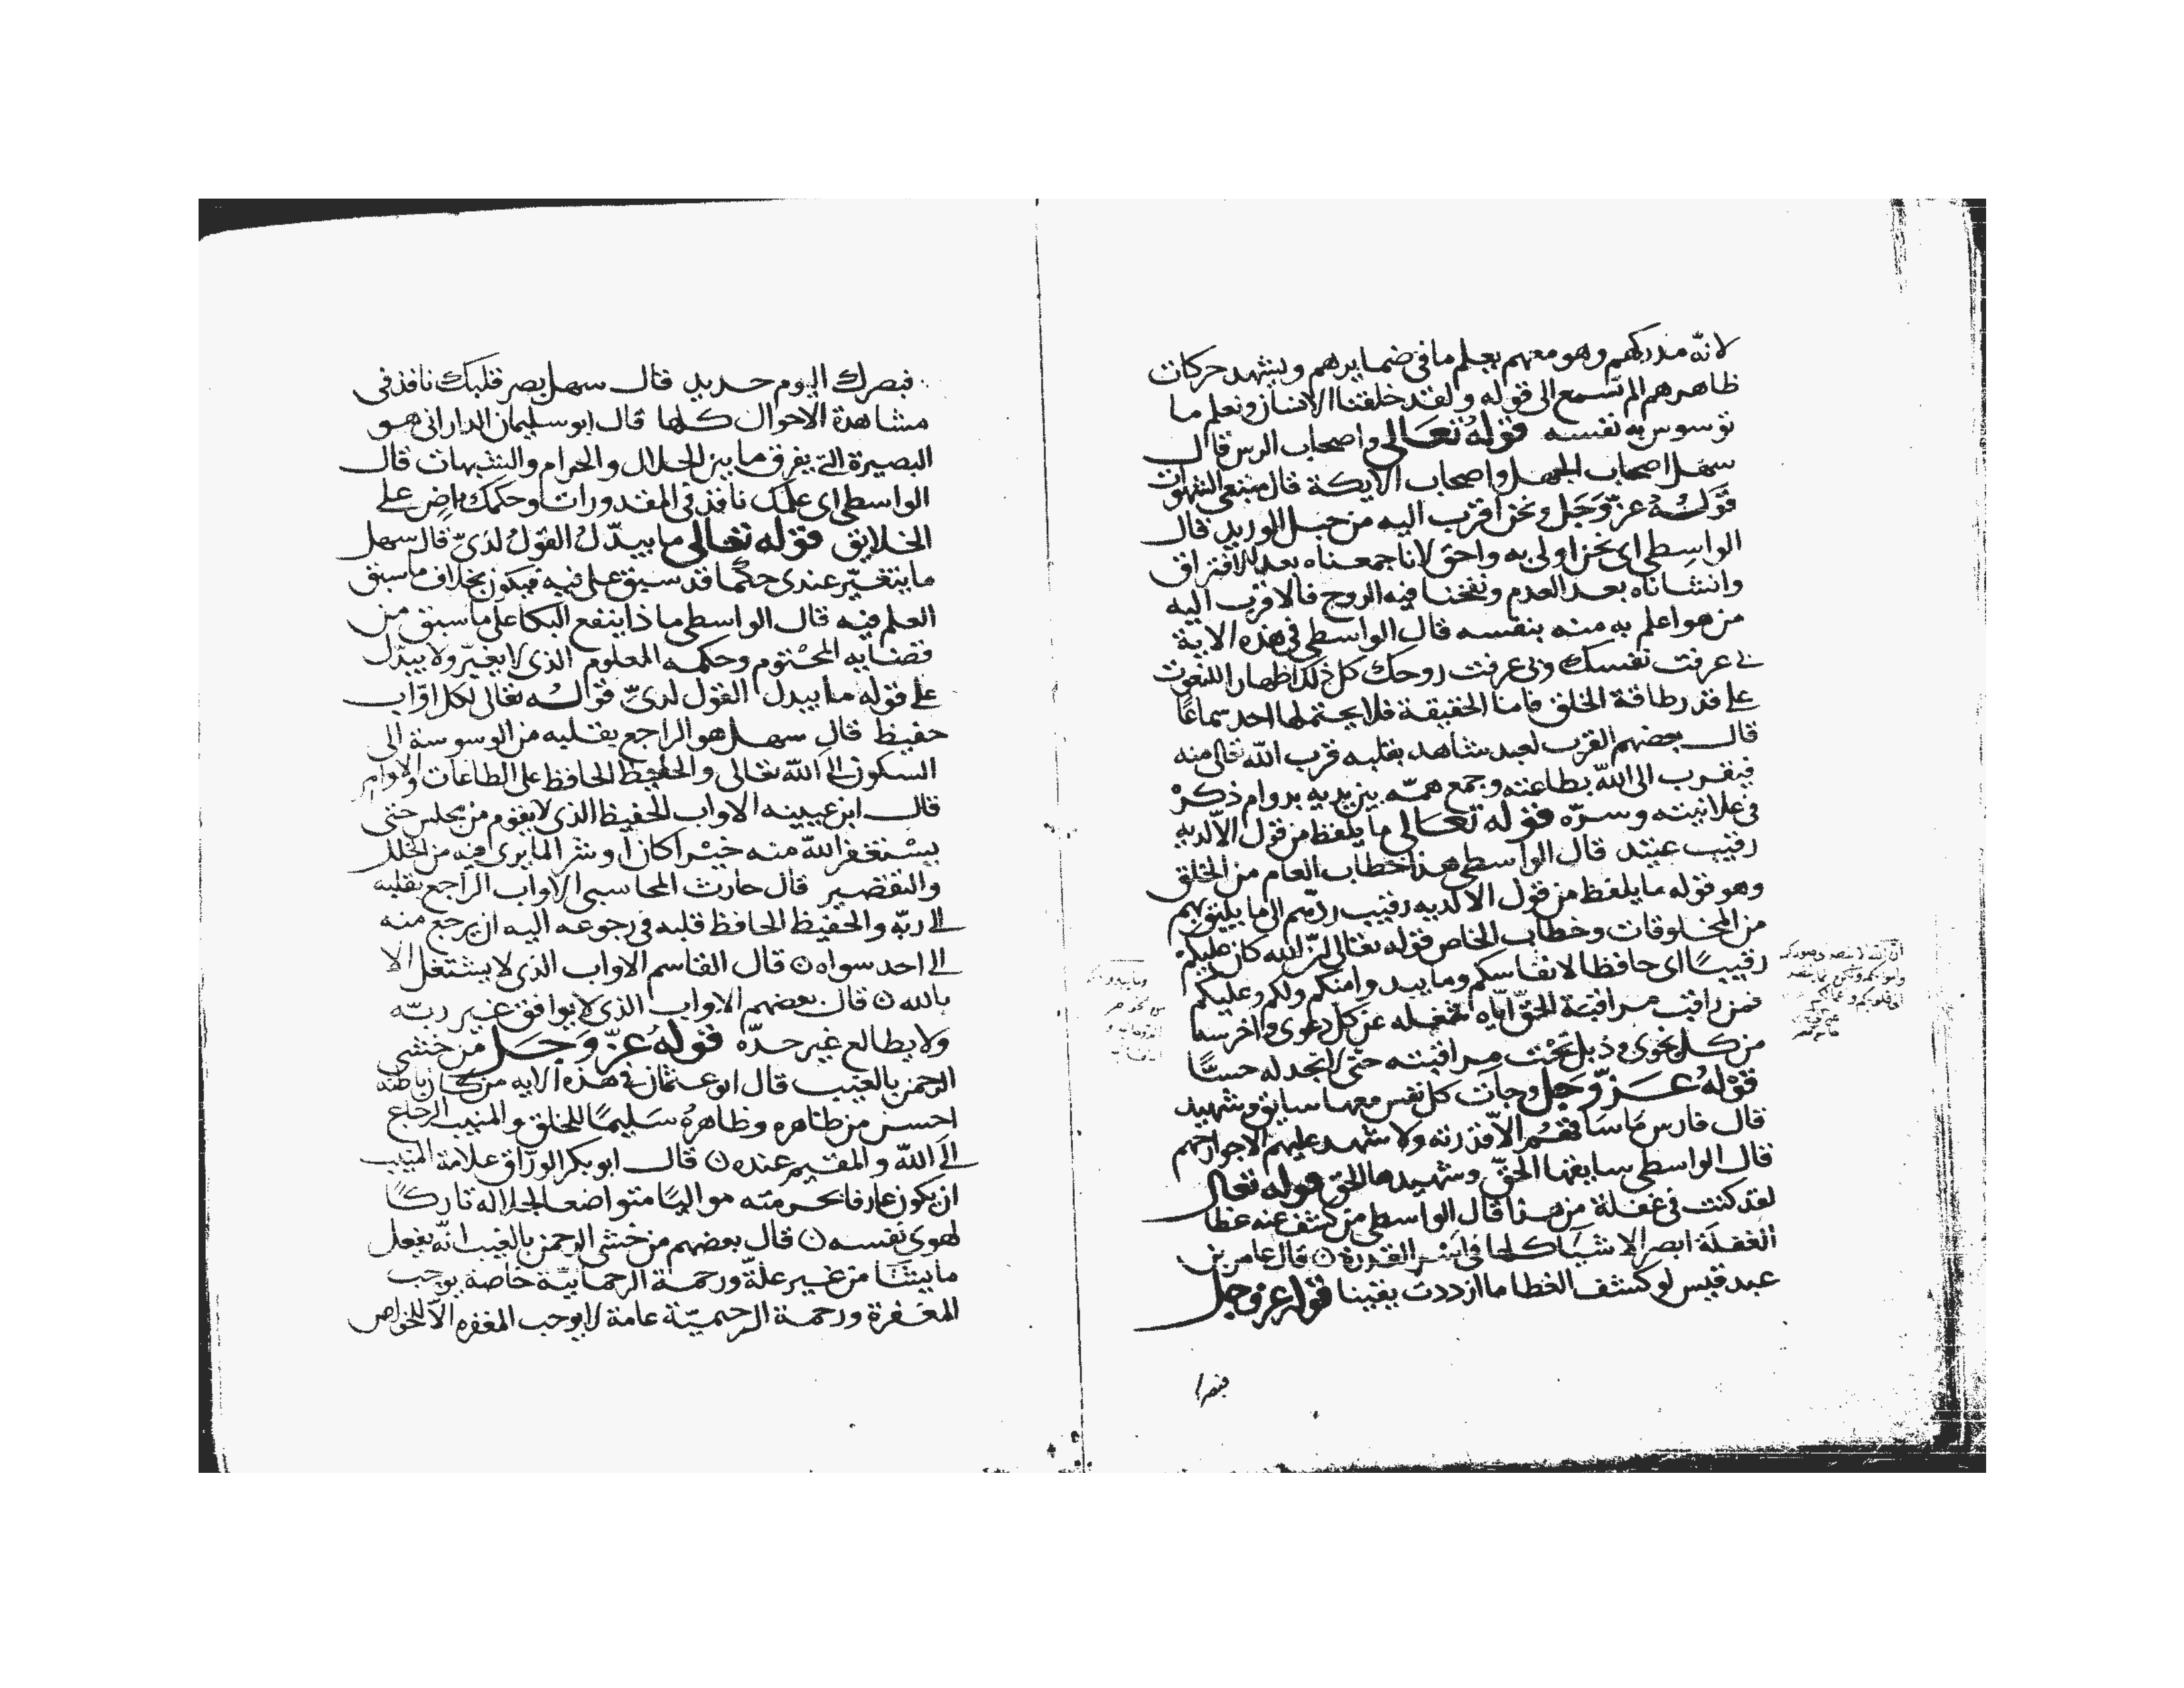 لانه مدركهم وهو معهم يعلم ما في ضمايرهم ويشهد حركات
ظاهرهم الم تسمع الى قوله ولقد خلقنا الانسان ونعلم ما
توسوس به نفسه قوله تعالى واصحاب الرس قال
سهل اصحاب الجهل واصحاب الايكة قال متبعي الشهوات
قوله عز وجل ونحن اقرب اليه من حبل الوريد قال
الواسطي اي نحن اولى به واحق لانا جمعناه بعد الافتراق
وانشاناه بعد العدم ونفخنا فيه الروح فالاقرب اليه
من هو اعلم به منه بنفسه قال الواسطي في هذه الاية
بي عرفت نفسك وبي عرفت روحك كل ذلك اظهار النعوت
على قدر طاقة الخلق فامّا الحقيقة فلا يحتملها احد سماعًا
قال بعضهم القرب لعبد شاهد بقلبه قرب الله تعالى منه
فيقرب الى الله بطاعته وجمع همّه بين يديه بدوام ذكره
في علانيته وسرّه قوله تعالى ما يلفظ من قول الّا لديه
رقيب عتيد قال الواسطي هذا خطاب العام من الخلق
وهو قوله ما يلفظ من قول الا لديه رقيب ردّهم الى ما يليق بهم
من المخلوقات وخطاب الخاص قوله تعالى انّ الله كان عليكم
رقيبًا اي حافظا لانفاسكم وما يبدوا منكم ولكم وعليكم
فمن راقب مراقبة الحقّ ايّاه شغله عن كل دعوى واخرسه
من كل نجوى وذبل تحت مراقبته حتّى لا تجد له حسًّا
قوله عزّ وجل وجآت كل نفس معها سايق وشهيد
قال فارس ما ساقهم الّا قدرته ولا شهد عليهم الا جوارحهم
قال الواسطي سايقها الحقّ وشهيدها الحق قوله تعالى
لقد كنت في غفلة من هذا قال الواسطي من كشف عنه غطا
الغفلة ابصر الاشيا كلها في اسر القدرة ن قال عامر بن
عبد قيس لو كشف الغطا ما ازددت يقينا قوله عز وجل
فبصرك اليوم حديد قال سهل بصر قلبك نافذ في
مشاهدة الاحوال كلها قال ابو سليمان الداراني هو
البصيرة التي يفرق ما بين الحلال والحرام والشبهات قال
الواسطي اي علمك نافذ في المقدورات وحكمك ماضٍ على
الخلايق قوله تعالى ما يبدّل القول لديّ قال سهل
ما يتغيّر عندي حكم ما قد سبق علمي فيه فيكون بخلاف ما سبق
العلم فيه قال الواسطي ما ذا ينفع البكا على ما سبق من
قضايه المحتوم وحكمه المعلوم الذي لا يغيّر ولا يبدّل
على قوله ما يبدل القول لديّ قوله تعالى لكل اوّاب
حفيظ قال سهل هو الراجع بقلبه من الوسوسة الى
السكون الى الله تعالى والحفيظ الحافظ على الطاعات والاوامر
قال ابن عيينه الاواب الحفيظ الذي لا يقوم من مجلس حتى
يستغفر الله منه خيرا كان او شرا لما يرى فيه من الخلل
والتقصير قال حارث المحاسبي الاواب الراجع بقلبه
الى ربّه والحفيظ الحافظ قلبه في رجوعه اليه ان يرجع منه
الى احد سواه ن قال القاسم الاواب الذي لا يشتغل الا
بالله ن قال بعضهم الاواب الذي لا يوافق غير ربّه
ولا يطالع غير حدّه قوله عزّ وجل من خشي
الرحمن بالغيب قال ابو عثمان في هذه الايه من كان باطنه
احسن من ظاهره وظاهره سليمًا للخلق والمنيب الراجع
الى الله والمقيم عنده ن قال ابو بكر الورّاق علامة المنيب
ان يكون عارفا بحرمته مواليًا متواضعا لجلاله تاركًا
لهوى نفسه ن قال بعضهم من خشي الرحمن بالغيب انّه يفعل
ما يشآ من غير علّة ورحمة الرحمانيّة خاصة يوجب
المغفرة ورحمة الرحيميّة عامة لا يوجب المغفره الّا للخواص